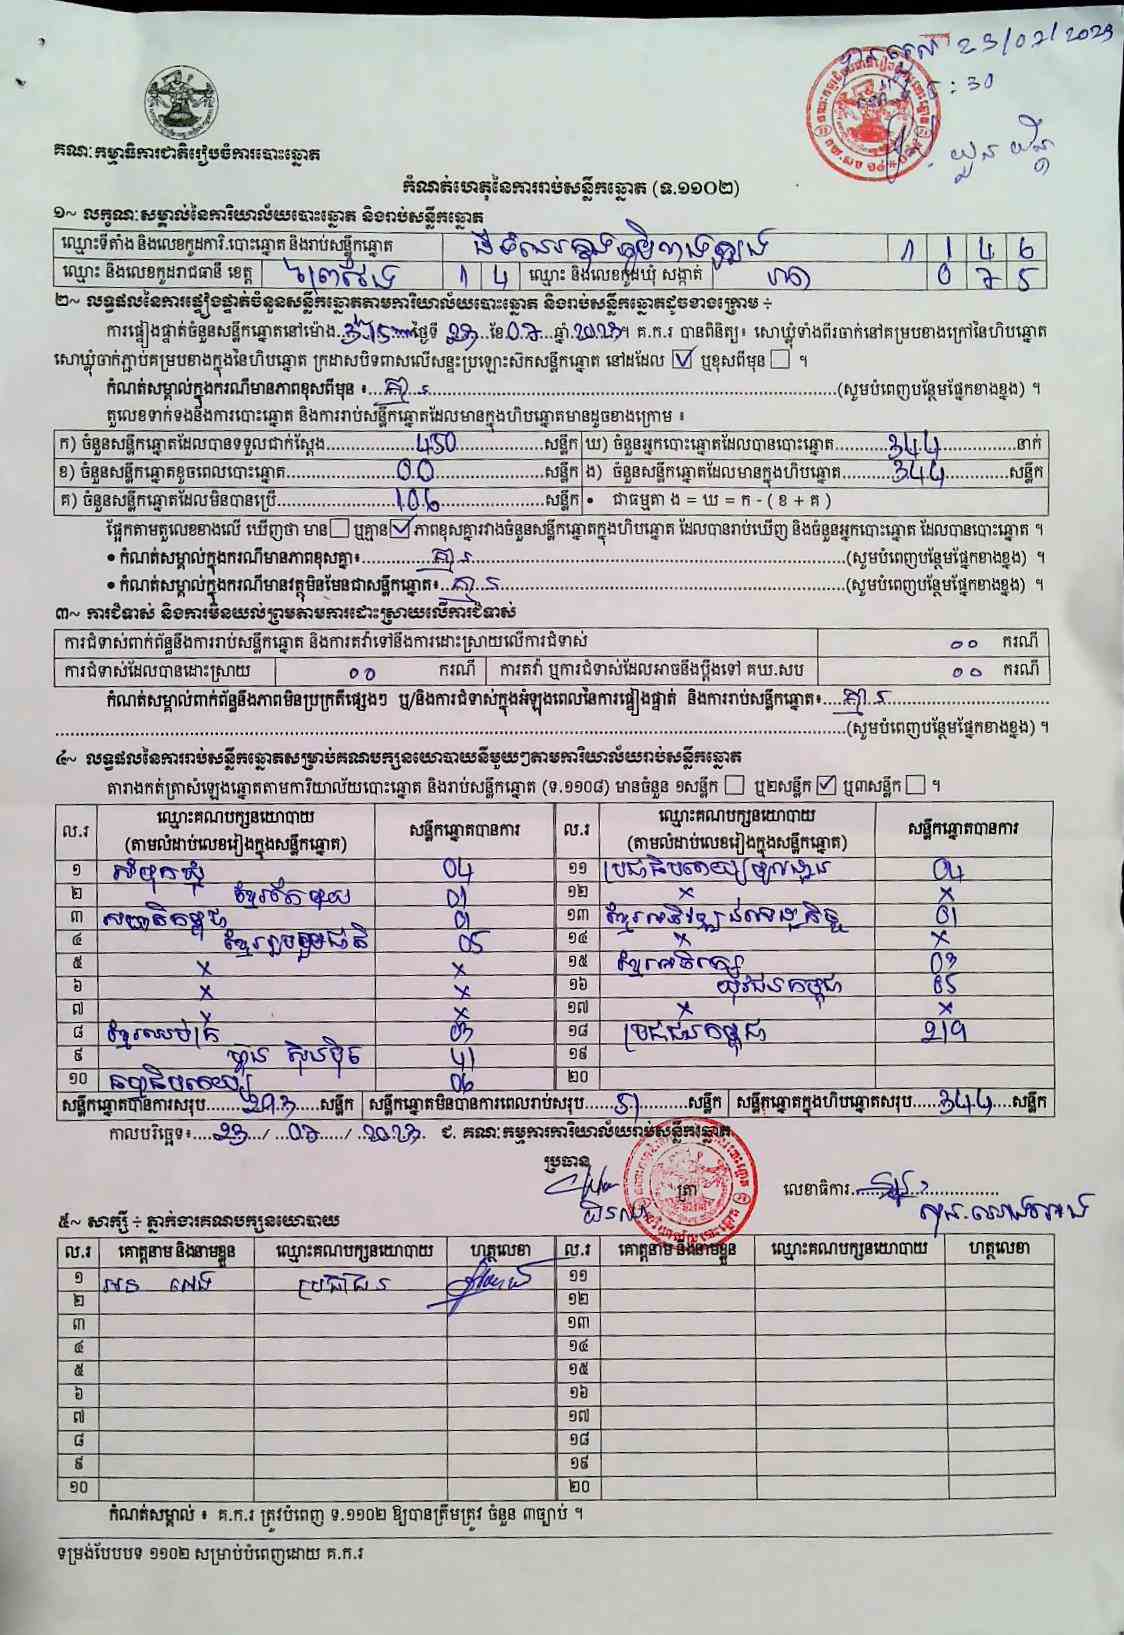 23/07/2023
គណៈកម្មាធិការជាតិរៀបចំការបោះឆ្នោត
កំណត់ហេតុនៃការរាប់សន្លឹកឆ្នោត (ទ.១១០២)
១~ លក្ខណៈសម្គាល់នៃការិយាល័យបោះឆ្នោត និងរាប់សន្លឹកឆ្នោត
ឈ្មោះទីតាំង និងលេខកូដការិ.បោះឆ្នោត និងរាប់សន្លឹកឆ្នោត 1 1 4 6
ឈ្មោះ និងលេខកូដរាជធានី ខេត្ត ព្រៃវែង 1 4 ឈ្មោះ និងលេខកូដឃុំ សង្កាត់ 0 7 5
២~ លទ្ធផលនៃការផ្ទៀងផ្ទាត់ចំនួនសន្លឹកឆ្នោតតាមការិយាល័យបោះឆ្នោត និងរាប់សន្លឹកឆ្នោតដូចខាងក្រោម ÷
ការផ្ទៀងផ្ទាត់ចំនួនសន្លឹកឆ្នោតនៅម៉ោង 3:15 ថ្ងៃទី 23 ខែ 07 ឆ្នាំ 2023។ គ.ក.រ បានពិនិត្យ៖ សោឃ្លុំទាំងពីរចាក់នៅគម្របខាងក្រៅនៃហិបឆ្នោត
សោឃ្លុំចាក់ភ្ជាប់គម្របខាងក្នុងនៃហិបឆ្នោត ក្រដាសបិទពាសលើសន្ទះប្រឡោះសិកសន្លឹកឆ្នោត នៅដដែល ☑ ឬខុសពីមុន ☐ ។
កំណត់សម្គាល់ក្នុងករណីមានភាពខុសពីមុន ៖ គ្មាន (សូមបំពេញបន្ថែមផ្នែកខាងខ្នង) ។
តួលេខទាក់ទងនឹងការបោះឆ្នោត និងការរាប់សន្លឹកឆ្នោតដែលមានក្នុងហិបឆ្នោតមានដូចខាងក្រោម ៖
ក) ចំនួនសន្លឹកឆ្នោតដែលបានទទួលជាក់ស្តែង 450 សន្លឹក ឃ) ចំនួនអ្នកបោះឆ្នោតដែលបានបោះឆ្នោត 344 នាក់
ខ) ចំនួនសន្លឹកឆ្នោតខូចពេលបោះឆ្នោត 00 សន្លឹក ង) ចំនួនសន្លឹកឆ្នោតដែលមានក្នុងហិបឆ្នោត 344 សន្លឹក
គ) ចំនួនសន្លឹកឆ្នោតដែលមិនបានប្រើ 106 សន្លឹក • ជាធម្មតា ង = ឃ = ក - ( ខ + គ )
ផ្អែកតាមតួលេខខាងលើ ឃើញថា មាន ☐ ឬគ្មាន ☑ ភាពខុសគ្នារវាងចំនួនសន្លឹកឆ្នោតក្នុងហិបឆ្នោត ដែលបានរាប់ឃើញ និងចំនួនអ្នកបោះឆ្នោត ដែលបានបោះឆ្នោត ។
• កំណត់សម្គាល់ក្នុងករណីមានភាពខុសគ្នា៖ គ្មាន (សូមបំពេញបន្ថែមផ្នែកខាងខ្នង) ។
• កំណត់សម្គាល់ក្នុងករណីមានវត្ថុមិនមែនជាសន្លឹកឆ្នោត៖ គ្មាន (សូមបំពេញបន្ថែមផ្នែកខាងខ្នង) ។
៣~ ការជំទាស់ និងការមិនយល់ព្រមតាមការដោះស្រាយលើការជំទាស់
ការជំទាស់ពាក់ព័ន្ធនឹងការរាប់សន្លឹកឆ្នោត និងការតវ៉ាទៅនឹងការដោះស្រាយលើការជំទាស់ 00 ករណី
ការជំទាស់ដែលបានដោះស្រាយ 00 ករណី ការតវ៉ា ឬការជំទាស់ដែលអាចនឹងប្តឹងទៅ គឃ.សប 00 ករណី
កំណត់សម្គាល់ពាក់ព័ន្ធនឹងភាពមិនប្រក្រតីផ្សេងៗ ឬ/និងការជំទាស់ក្នុងអំឡុងពេលនៃការផ្ទៀងផ្ទាត់ និងការរាប់សន្លឹកឆ្នោត៖ គ្មាន
(សូមបំពេញបន្ថែមផ្នែកខាងខ្នង) ។
៤~ លទ្ធផលនៃការរាប់សន្លឹកឆ្នោតសម្រាប់គណបក្សនយោបាយនីមួយៗតាមការិយាល័យរាប់សន្លឹកឆ្នោត
តារាងកត់ត្រាសំឡេងឆ្នោតតាមការិយាល័យបោះឆ្នោត និងរាប់សន្លឹកឆ្នោត (ទ.១១០៨) មានចំនួន ១សន្លឹក ☐ ឬ២សន្លឹក ☑ ឬ៣សន្លឹក ☐ ។
ល.រ ឈ្មោះគណបក្សនយោបាយ (តាមលំដាប់លេខរៀងក្នុងសន្លឹកឆ្នោត) សន្លឹកឆ្នោតបានការ ល.រ ឈ្មោះគណបក្សនយោបាយ (តាមលំដាប់លេខរៀងក្នុងសន្លឹកឆ្នោត) សន្លឹកឆ្នោតបានការ
១ សំបុកឃ្មុំ 04 ១១ ប្រជាធិបតេយ្យមូលដ្ឋាន 04
២ ខ្មែរតែមួយ 01 ១២ × ×
៣ 01 ១៣ 01
៤ ខ្មែររួបរួមជាតិ 05 ១៤ × ×
៥ × × ១៥ ខ្មែរអភិរក្ស 03
៦ × × ១៦ យុវជនកម្ពុជា 05
៧ × × ១៧ × ×
៨ ខ្មែរឈប់ក្រ 03 ១៨ ប្រជាជនកម្ពុជា 219
៩ ហ៊្វុនស៊ិនប៉ិច 41 ១៩
១០ 06 ២០
សន្លឹកឆ្នោតបានការសរុប 293 សន្លឹក សន្លឹកឆ្នោតមិនបានការពេលរាប់សរុប 51 សន្លឹក សន្លឹកឆ្នោតក្នុងហិបឆ្នោតសរុប 344 សន្លឹក
កាលបរិច្ឆេទ៖ 23 / 07 / 2023. ជ. គណៈកម្មការការិយាល័យរាប់សន្លឹកឆ្នោត
ប្រធាន
ត្រា លេខាធិការ
៥~ សាក្សី ÷ ភ្នាក់ងារគណបក្សនយោបាយ
ល.រ គោត្តនាម និងនាមខ្លួន ឈ្មោះគណបក្សនយោបាយ ហត្ថលេខា ល.រ គោត្តនាម និងនាមខ្លួន ឈ្មោះគណបក្សនយោបាយ ហត្ថលេខា
១ ប្រជាជន ១១
២ ១២
៣ ១៣
៤ ១៤
៥ ១៥
៦ ១៦
៧ ១៧
៨ ១៨
៩ ១៩
១០ ២០
កំណត់សម្គាល់ ៖ គ.ក.រ ត្រូវបំពេញ ទ.១១០២ ឱ្យបានត្រឹមត្រូវ ចំនួន ៣ច្បាប់ ។
ទម្រង់បែបបទ ១១០២ សម្រាប់បំពេញដោយ គ.ក.រ